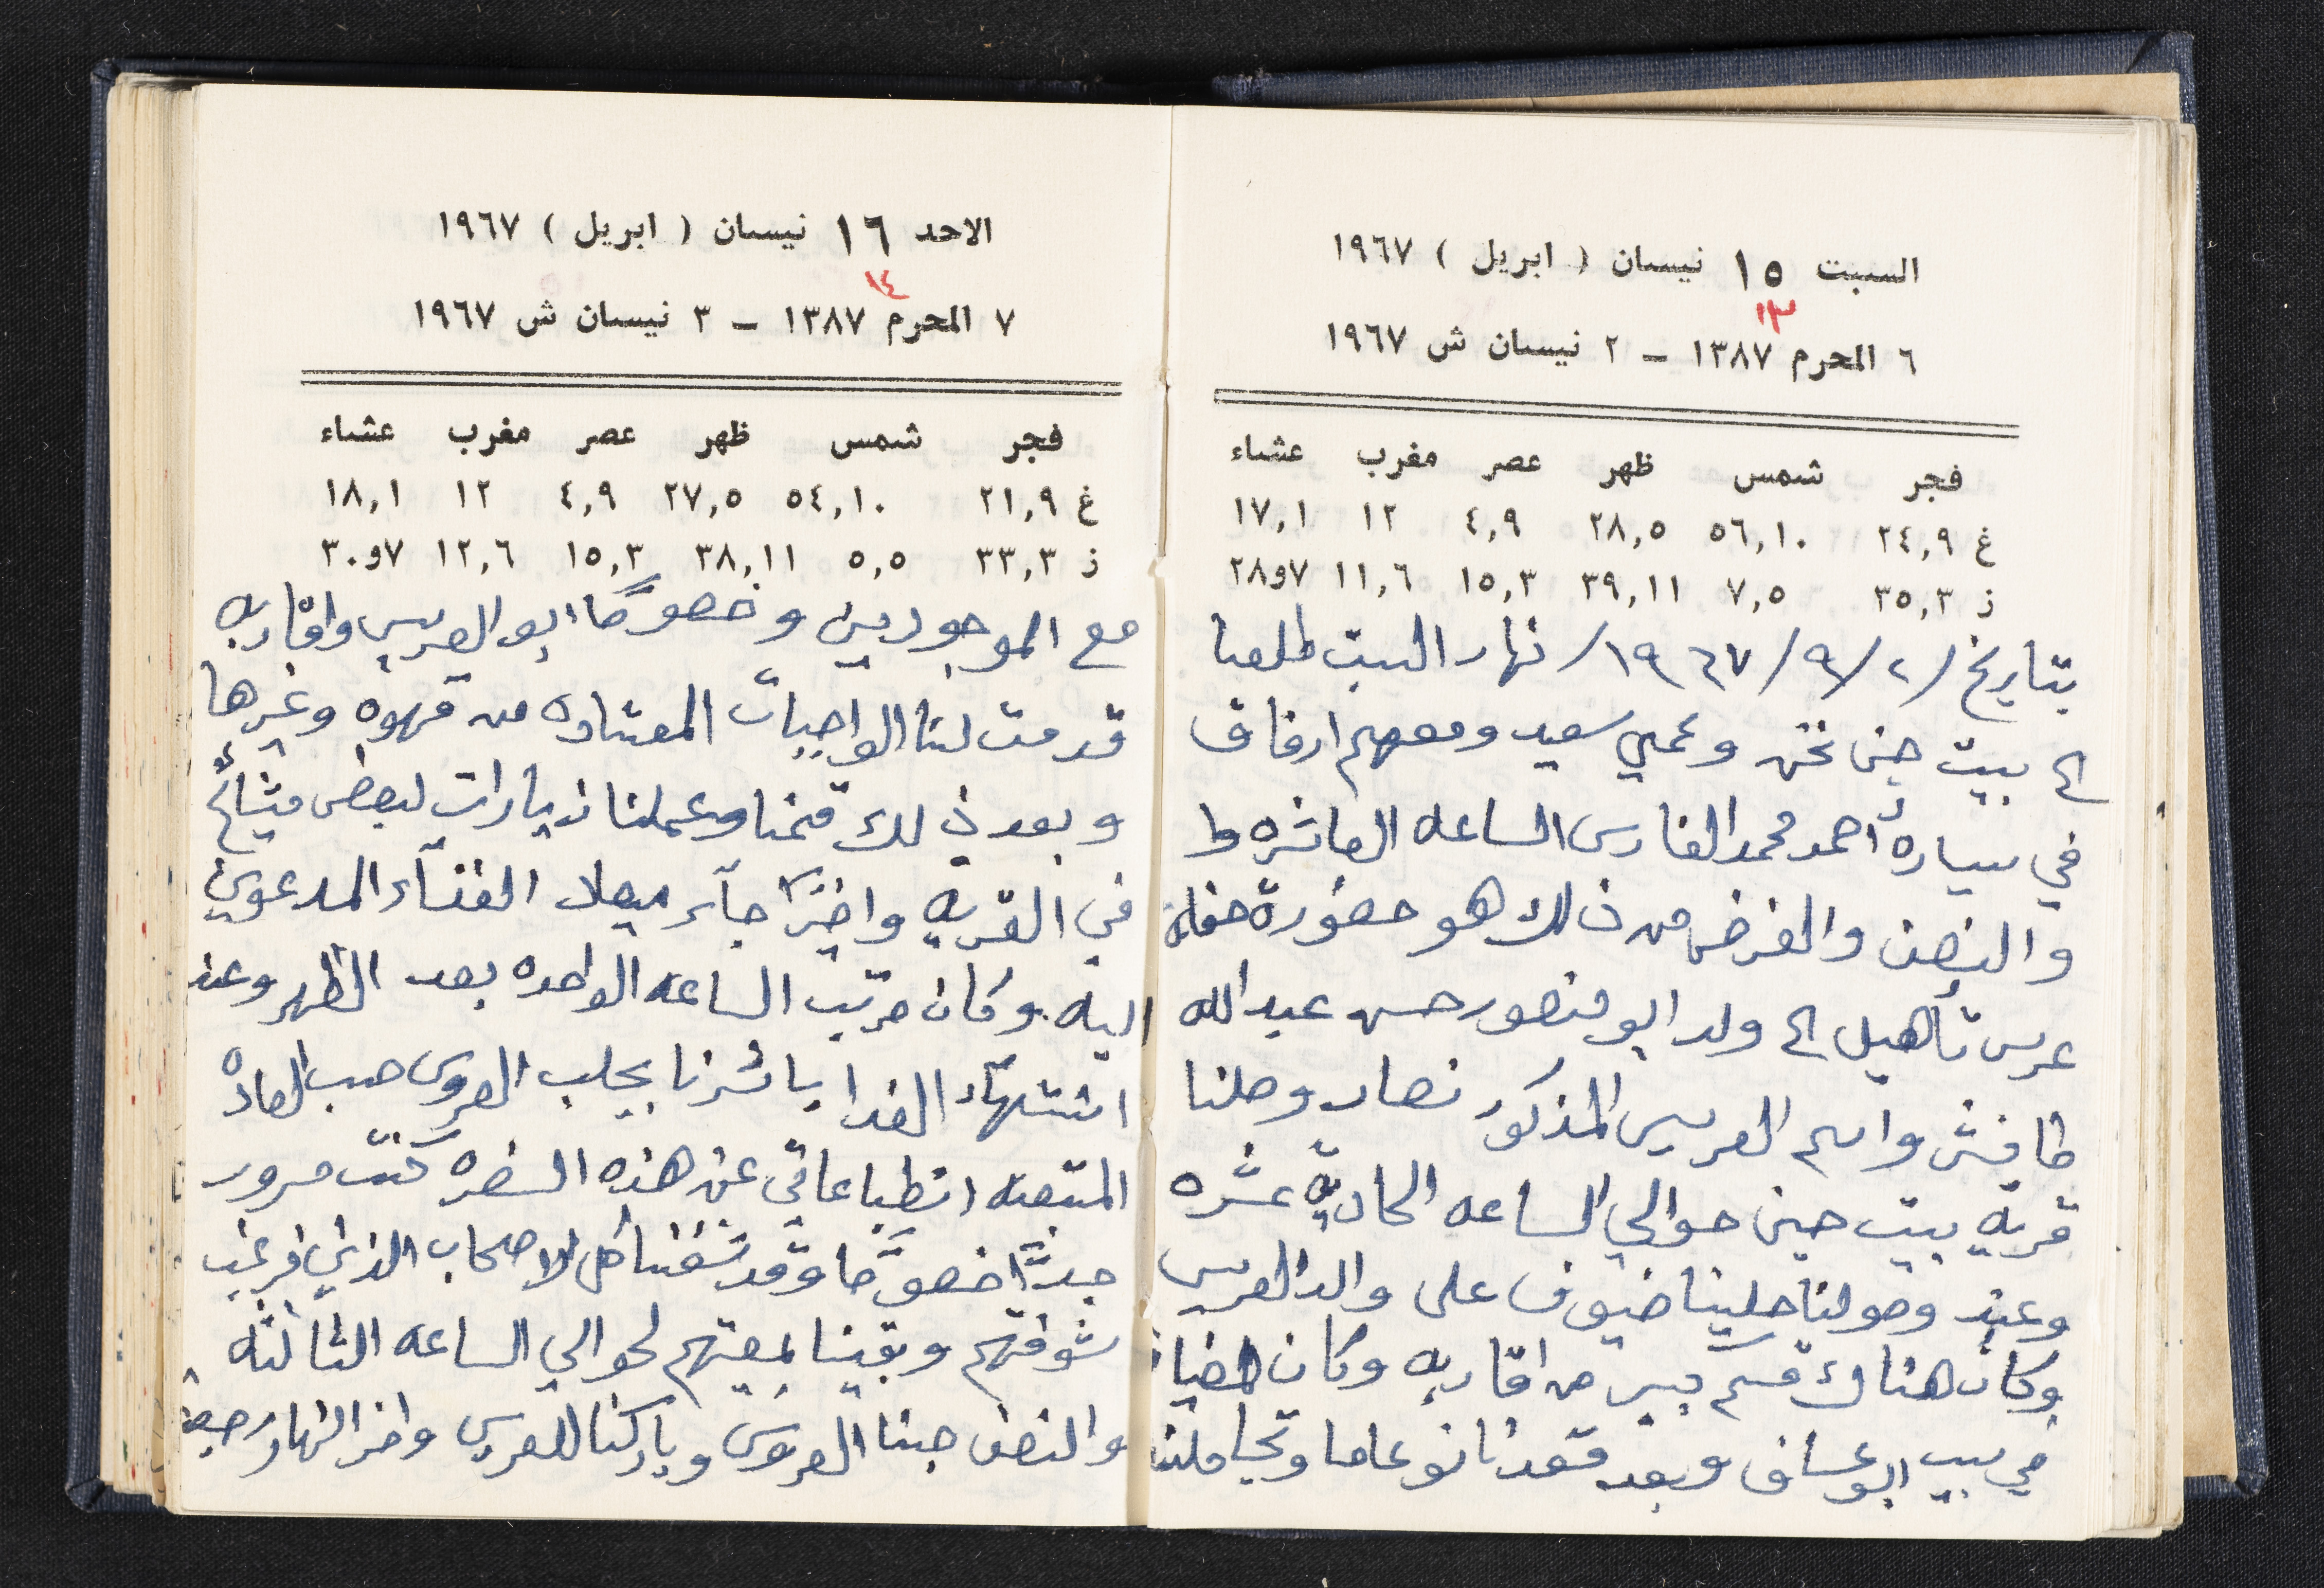 السبت ١٥ نيسان ( ابريل ) ١٩٦٧
١٣
٦ المحرم ١٣٨٧ – ٢ نيسان ش ١٩٦٧
فجر شمس ظهر عصر مغرب عشاء
غ ٢٤,٩ ٥٦,١٠ ٢٨,٥ ٤,٩ ١٢ ١٧,١
ز ٣٥,٣ ٧,٥ ٣٩,١١ ١٥,٣ ١١,٦ ٧و٢٨
بتاريخ /٢/٩/١٩٦٧/ نهار السبت طلعنا
الى بيت جن نحن وعمي سعيد ومعهم ارفاق
في سيارة أحمد محمد الفارس الساعه العاشره
والنصف والغرض من ذلك هو حضورة حفلة
عرس تأهيل الى ولد ابو منصور حسن عبدالله
طافش واسم العريس المذكور نصار وصلنا
قريه بيت جن حوالي الساعه الحاديّة عشره
وعند وصولنا حلينا ضيوف على والد العريس
وكان هناك قسم كبير من اقاربه وكان المضيا
في بيت ابو عساف وبعد قعدنا نوعا ما وتجاملنا
الاحد ١٦ نيسان ( ابريل ) ١٩٦٧
١٤
٧ المحرم ١٣٨٧ – ٣ نيسان ش ١٩٦٧
فجر شمس ظهر عصر مغرب عشاء
غ ٢١,٩ ٥٤,١٠ ٢٧,٥ ٤,٩ ١٢ ١٨,١
ز ٣٣,٣ ٥,٥ ٣٨,١١ ١٥,٣ ١٢,٦ ٧و٣٠
مع الموجودين وخصوصًا ابو العريس واقاربه
قدمت لنا الواجبات المعتاده من قهوه وغيرها
وبعد ذلك قمنا وعملنا زيارات لبعض مشائخ
في القريه واخيرًا جآء ميعاد الغدآء المدعوين
اليه وكان مرتب الساعه الواحده بعد الظهر وعند
انتهآء الغدا باشرنا بجلب العروس حسب العادة
المتبعه انطباعاتي عن هذه السفره كنت مسرور
جدًّا خصوصًا وقد شفنا كل الاصحاب الذين نرغب
شوفتهم وبقينا بمعيتهم لحوالي الساعه الثالثه
والنصف جبنا العروس وباركنا للعريس واخر النهار